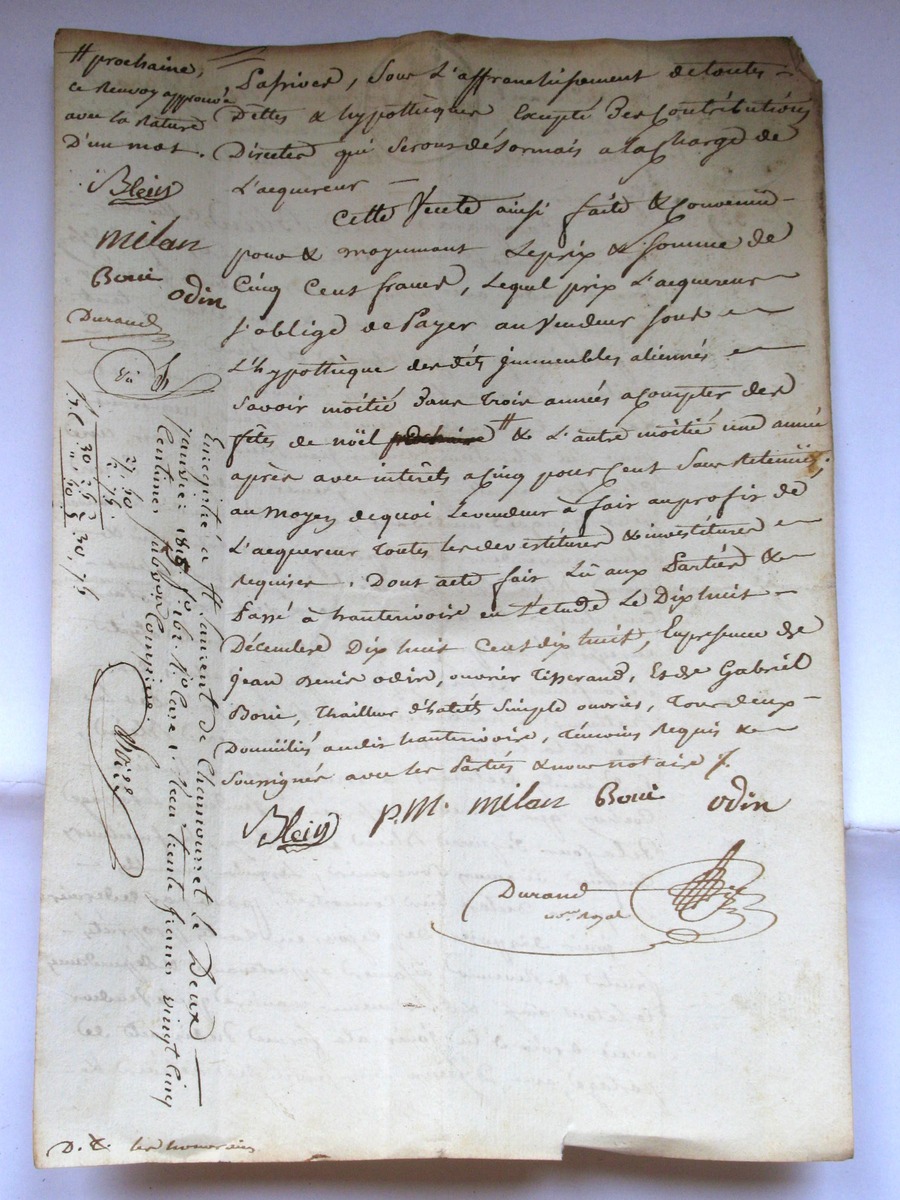 # prochaine,
ce Renvoy approuvé
avec la Rature
D'un mot.
Blein
milan
Boui
odin
Durand
Passives, Sous L'affranchissement de toutes
Dettes & hypothèques Excepté Des Contributions
Directes qui Serons désormais a la Charge de
L'acquereur
Cette Vente ainsi faite & Convenue
pour & moyennant Le prix & Somme de
Cinq Cent francs, Lequel prix L'acquereur
s'oblige de Payer au Vendeur sous
L'hypothèque des dits Immeubles aliennés
Savoir moitié Dans Trois années a Compter des
fêtes de noël # & L'autre moitié une année
après avec intérêts a Cinq pour Cent Sans Retenües:
au moyen de quoi Le vendeur à fait au profit de
L'acquereur Toutes les devestitures & investitures
Requises. Dont acte fait Lû aux Parties &
Passé à hauterivoire en L'étude Le Dix huit
Décembre Dix huit Cent dix huit, En présence de
jean Denis odin, ouvrier Tisserand, Et de Gabriel
Boui, Thailleur d'habits Simple ouvrier, Tous deux
Domiciliés audit hauterivoire, Témoins Requis &
Soussignés avec les Parties & nous notaire /.
Blein P.M. milan Boui odin
Durand
nore Royal
Enregistré à St Laurent de Chamousset le Deux
janvier 1819 fo. 162. Ro Case 1. Reçu trente francs vingt cinq
Centimes Subvon Comprise.
27, 50
2, 75
30, 25
30, 75
D. & les honoraires